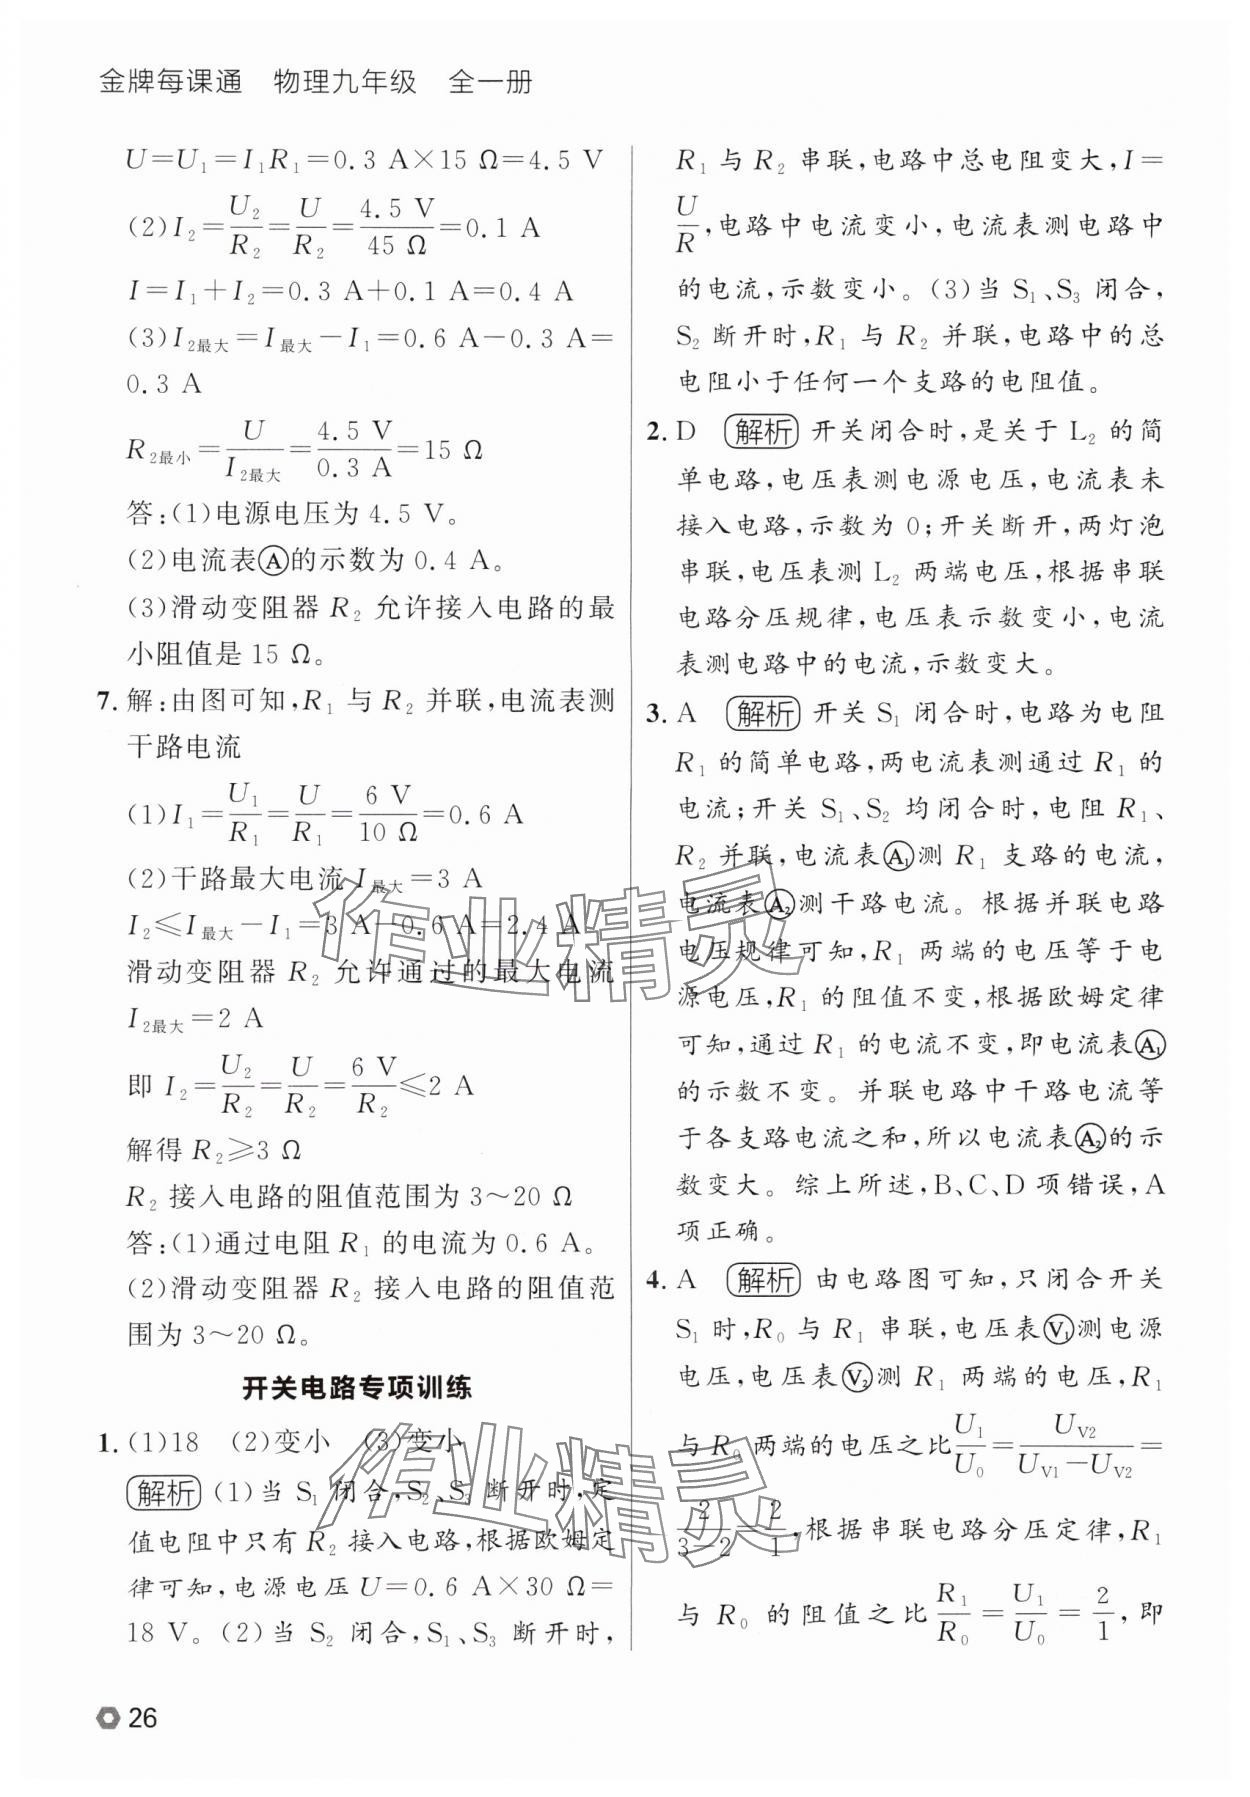 金牌每课通 物理九年级 全一册
U=U₁=I₁R₁=0.3 A×15 Ω=4.5 V
(2)I₂=U₂/R₂=U/R₂=4.5 V/45 Ω=0.1 A
I=I₁+I₂=0.3 A+0.1 A=0.4 A
(3)I₂最大=I最大-I₁=0.6 A-0.3 A=
0.3 A
R₂最小=U/I₂最大=4.5 V/0.3 A=15 Ω
答:(1)电源电压为 4.5 V。
(2)电流表Ⓐ的示数为 0.4 A。
(3)滑动变阻器 R₂ 允许接入电路的最
小阻值是 15 Ω。
7. 解:由图可知,R₁ 与 R₂ 并联,电流表测
干路电流
(1)I₁=U₁/R₁=U/R₁=6 V/10 Ω=0.6 A
(2)干路最大电流 I最大=3 A
I₂≤I最大-I₁=3 A-0.6 A=2.4 A
滑动变阻器 R₂ 允许通过的最大电流
I₂最大=2 A
即 I₂=U₂/R₂=U/R₂=6 V/R₂≤2 A
解得 R₂≥3 Ω
R₂ 接入电路的阻值范围为 3~20 Ω
答:(1)通过电阻 R₁ 的电流为 0.6 A。
(2)滑动变阻器 R₂ 接入电路的阻值范
围为 3~20 Ω。
开关电路专项训练
1. (1)18 (2)变小 (3)变小
解析 (1)当 S₁ 闭合,S₂、S₃ 断开时,定
值电阻中只有 R₂ 接入电路,根据欧姆定
律可知,电源电压 U=0.6 A×30 Ω=
18 V。(2)当 S₂ 闭合,S₁、S₃ 断开时,
R₁ 与 R₂ 串联,电路中总电阻变大,I=
U/R,电路中电流变小,电流表测电路中
的电流,示数变小。(3)当 S₁、S₃ 闭合,
S₂ 断开时,R₁ 与 R₂ 并联,电路中的总
电阻小于任何一个支路的电阻值。
2. D 解析 开关闭合时,是关于 L₂ 的简
单电路,电压表测电源电压,电流表未
接入电路,示数为 0;开关断开,两灯泡
串联,电压表测 L₂ 两端电压,根据串联
电路分压规律,电压表示数变小,电流
表测电路中的电流,示数变大。
3. A 解析 开关 S₁ 闭合时,电路为电阻
R₁ 的简单电路,两电流表测通过 R₁ 的
电流;开关 S₁、S₂ 均闭合时,电阻 R₁、
R₂ 并联,电流表(A₁)测 R₁ 支路的电流,
电流表(A₂)测干路电流。根据并联电路
电压规律可知,R₁ 两端的电压等于电
源电压,R₁ 的阻值不变,根据欧姆定律
可知,通过 R₁ 的电流不变,即电流表(A₁)
的示数不变。并联电路中干路电流等
于各支路电流之和,所以电流表(A₂)的示
数变大。综上所述,B、C、D 项错误,A
项正确。
4. A 解析 由电路图可知,只闭合开关
S₁ 时,R₀ 与 R₁ 串联,电压表(V₁)测电源
电压,电压表(V₂)测 R₁ 两端的电压,R₁
与 R₀ 两端的电压之比U₁/U₀=U_V2/(U_V1-U_V2)=
2/(3-2)=2/1,根据串联电路分压定律,R₁
与 R₀ 的阻值之比R₁/R₀=U₁/U₀=2/1,即
26
作业精灵
作业精灵